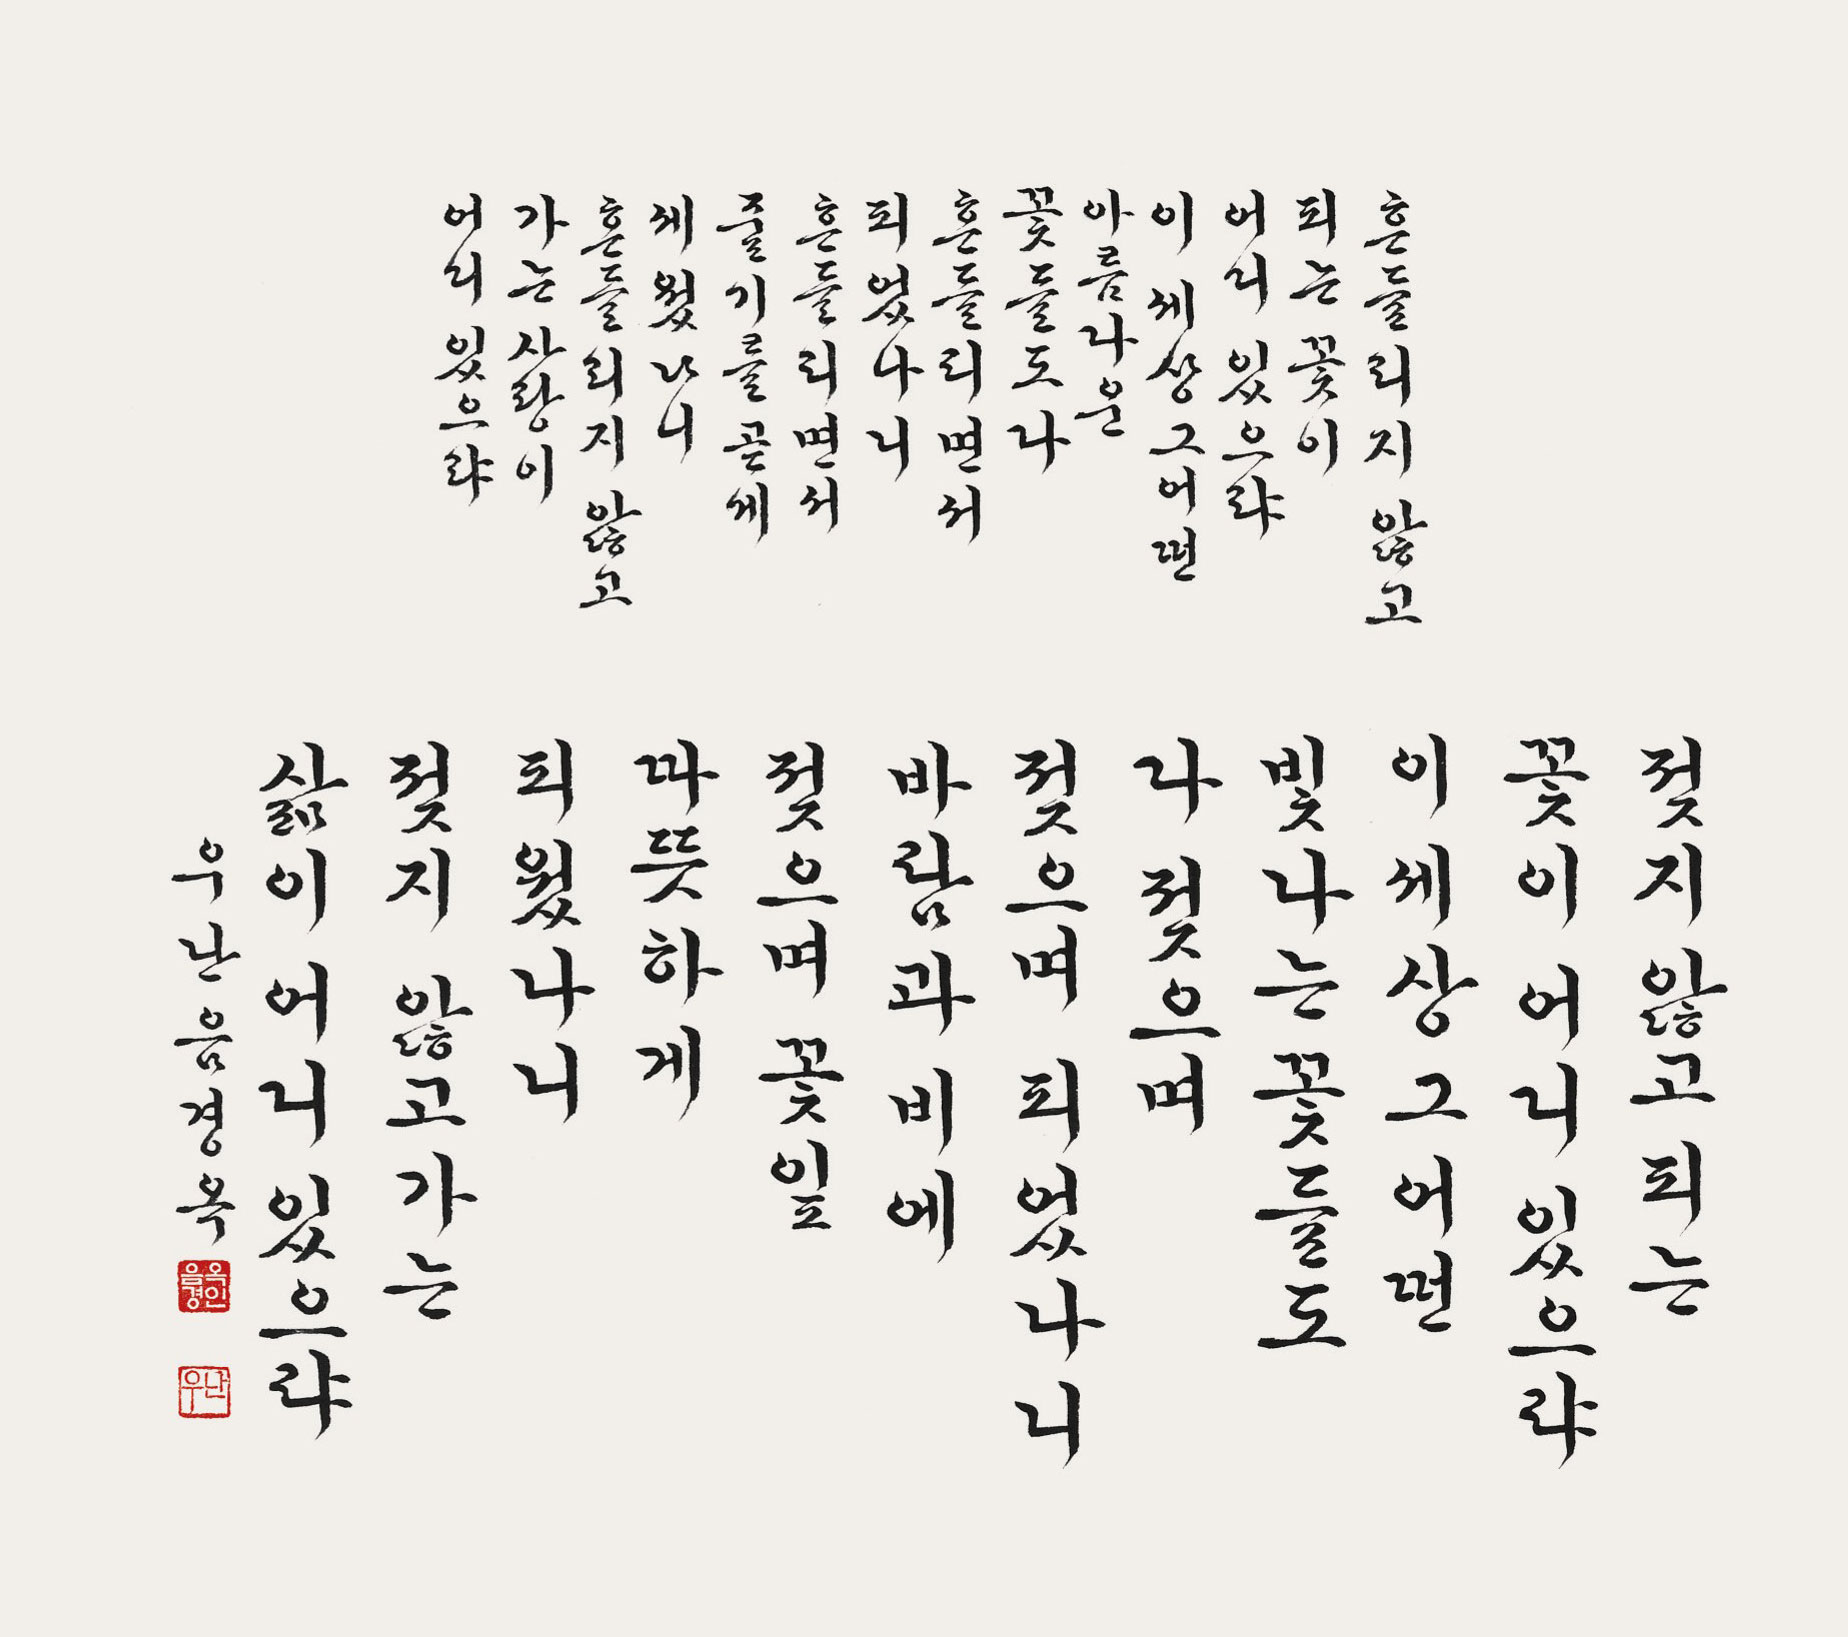 흔들리지 않고
피는 꽃이
어디 있으랴
이 세상 그 어떤
아름다운
꽃들도 다
흔들리면서
피었나니
흔들리면서
줄기를 곧게
세웠나니
흔들리지 않고
가는 사랑이
어디 있으랴
젖지 않고 피는
꽃이 어디 있으랴
이 세상 그 어떤
빛나는 꽃들도
다 젖으며
젖으며 피었나니
바람과 비에
젖으며 꽃잎
따뜻하게
피웠나니
젖지 않고 가는
삶이 어디 있으랴
우난 음경옥
음경옥인
우난